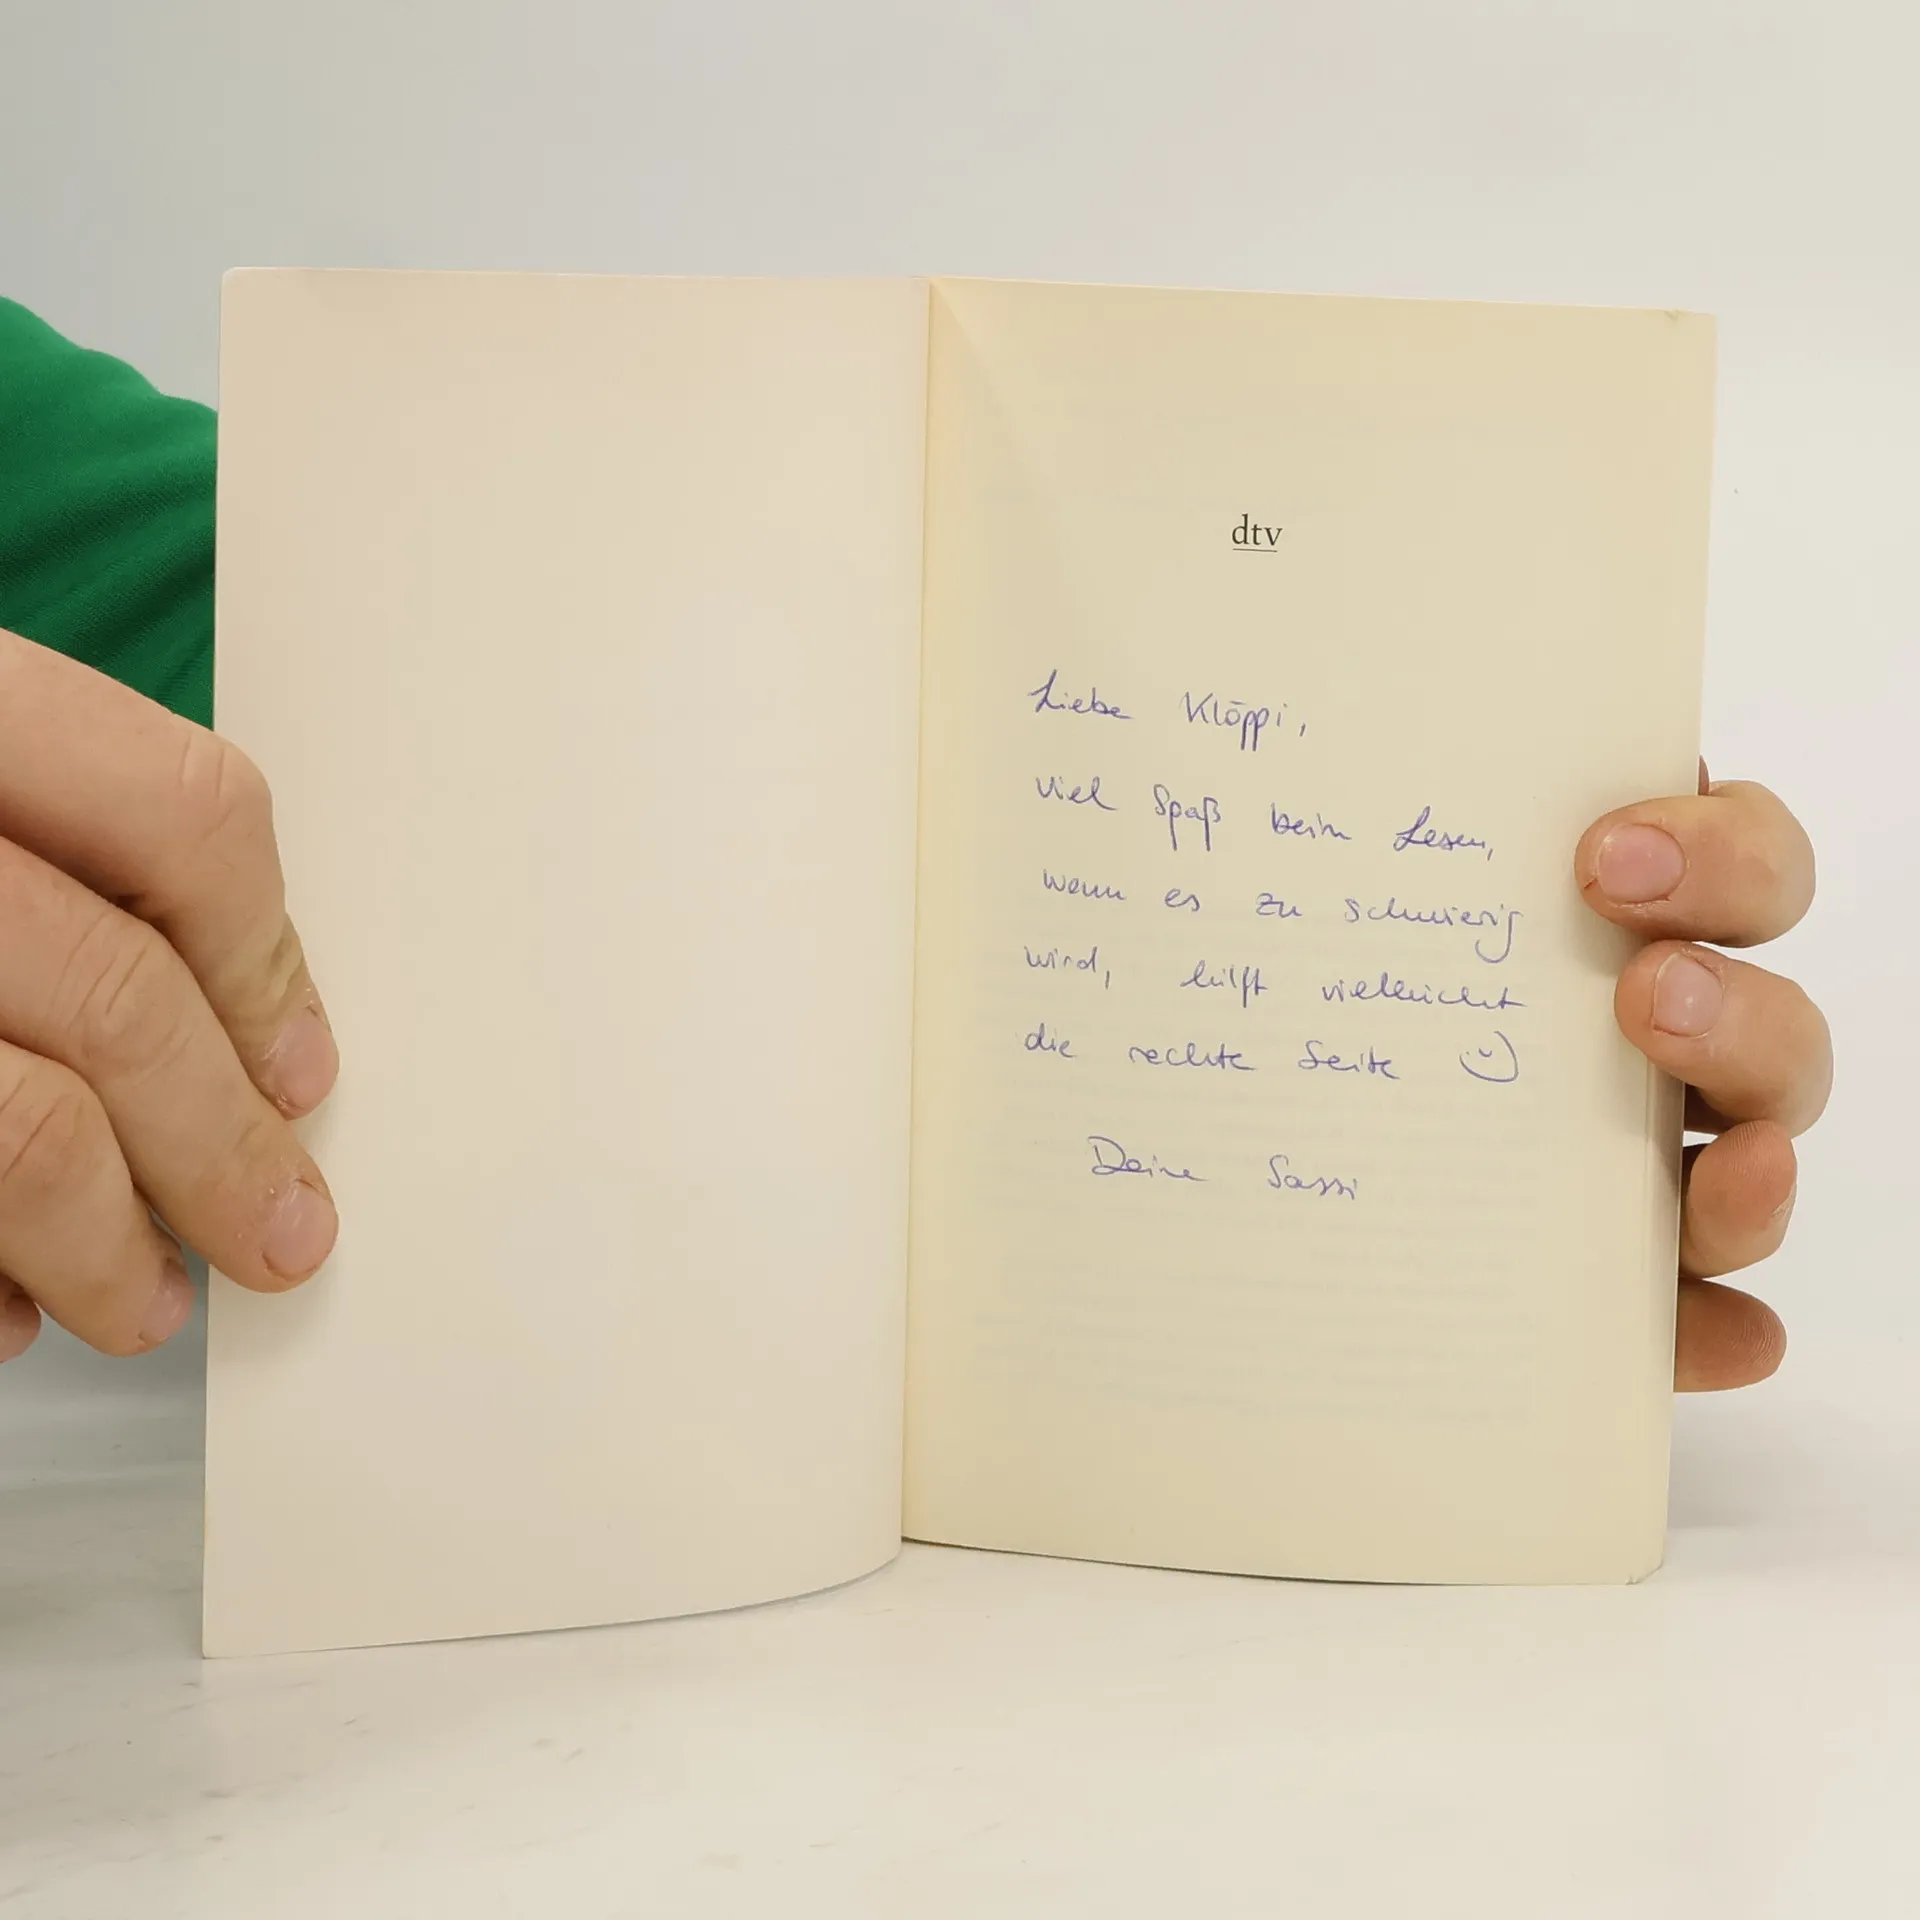 dtv
Liebe Klöppi,
viel Spaß beim Lesen,
wenn es zu schwierig
wird, hilft vielleicht
die rechte Seite
Deine Sassi